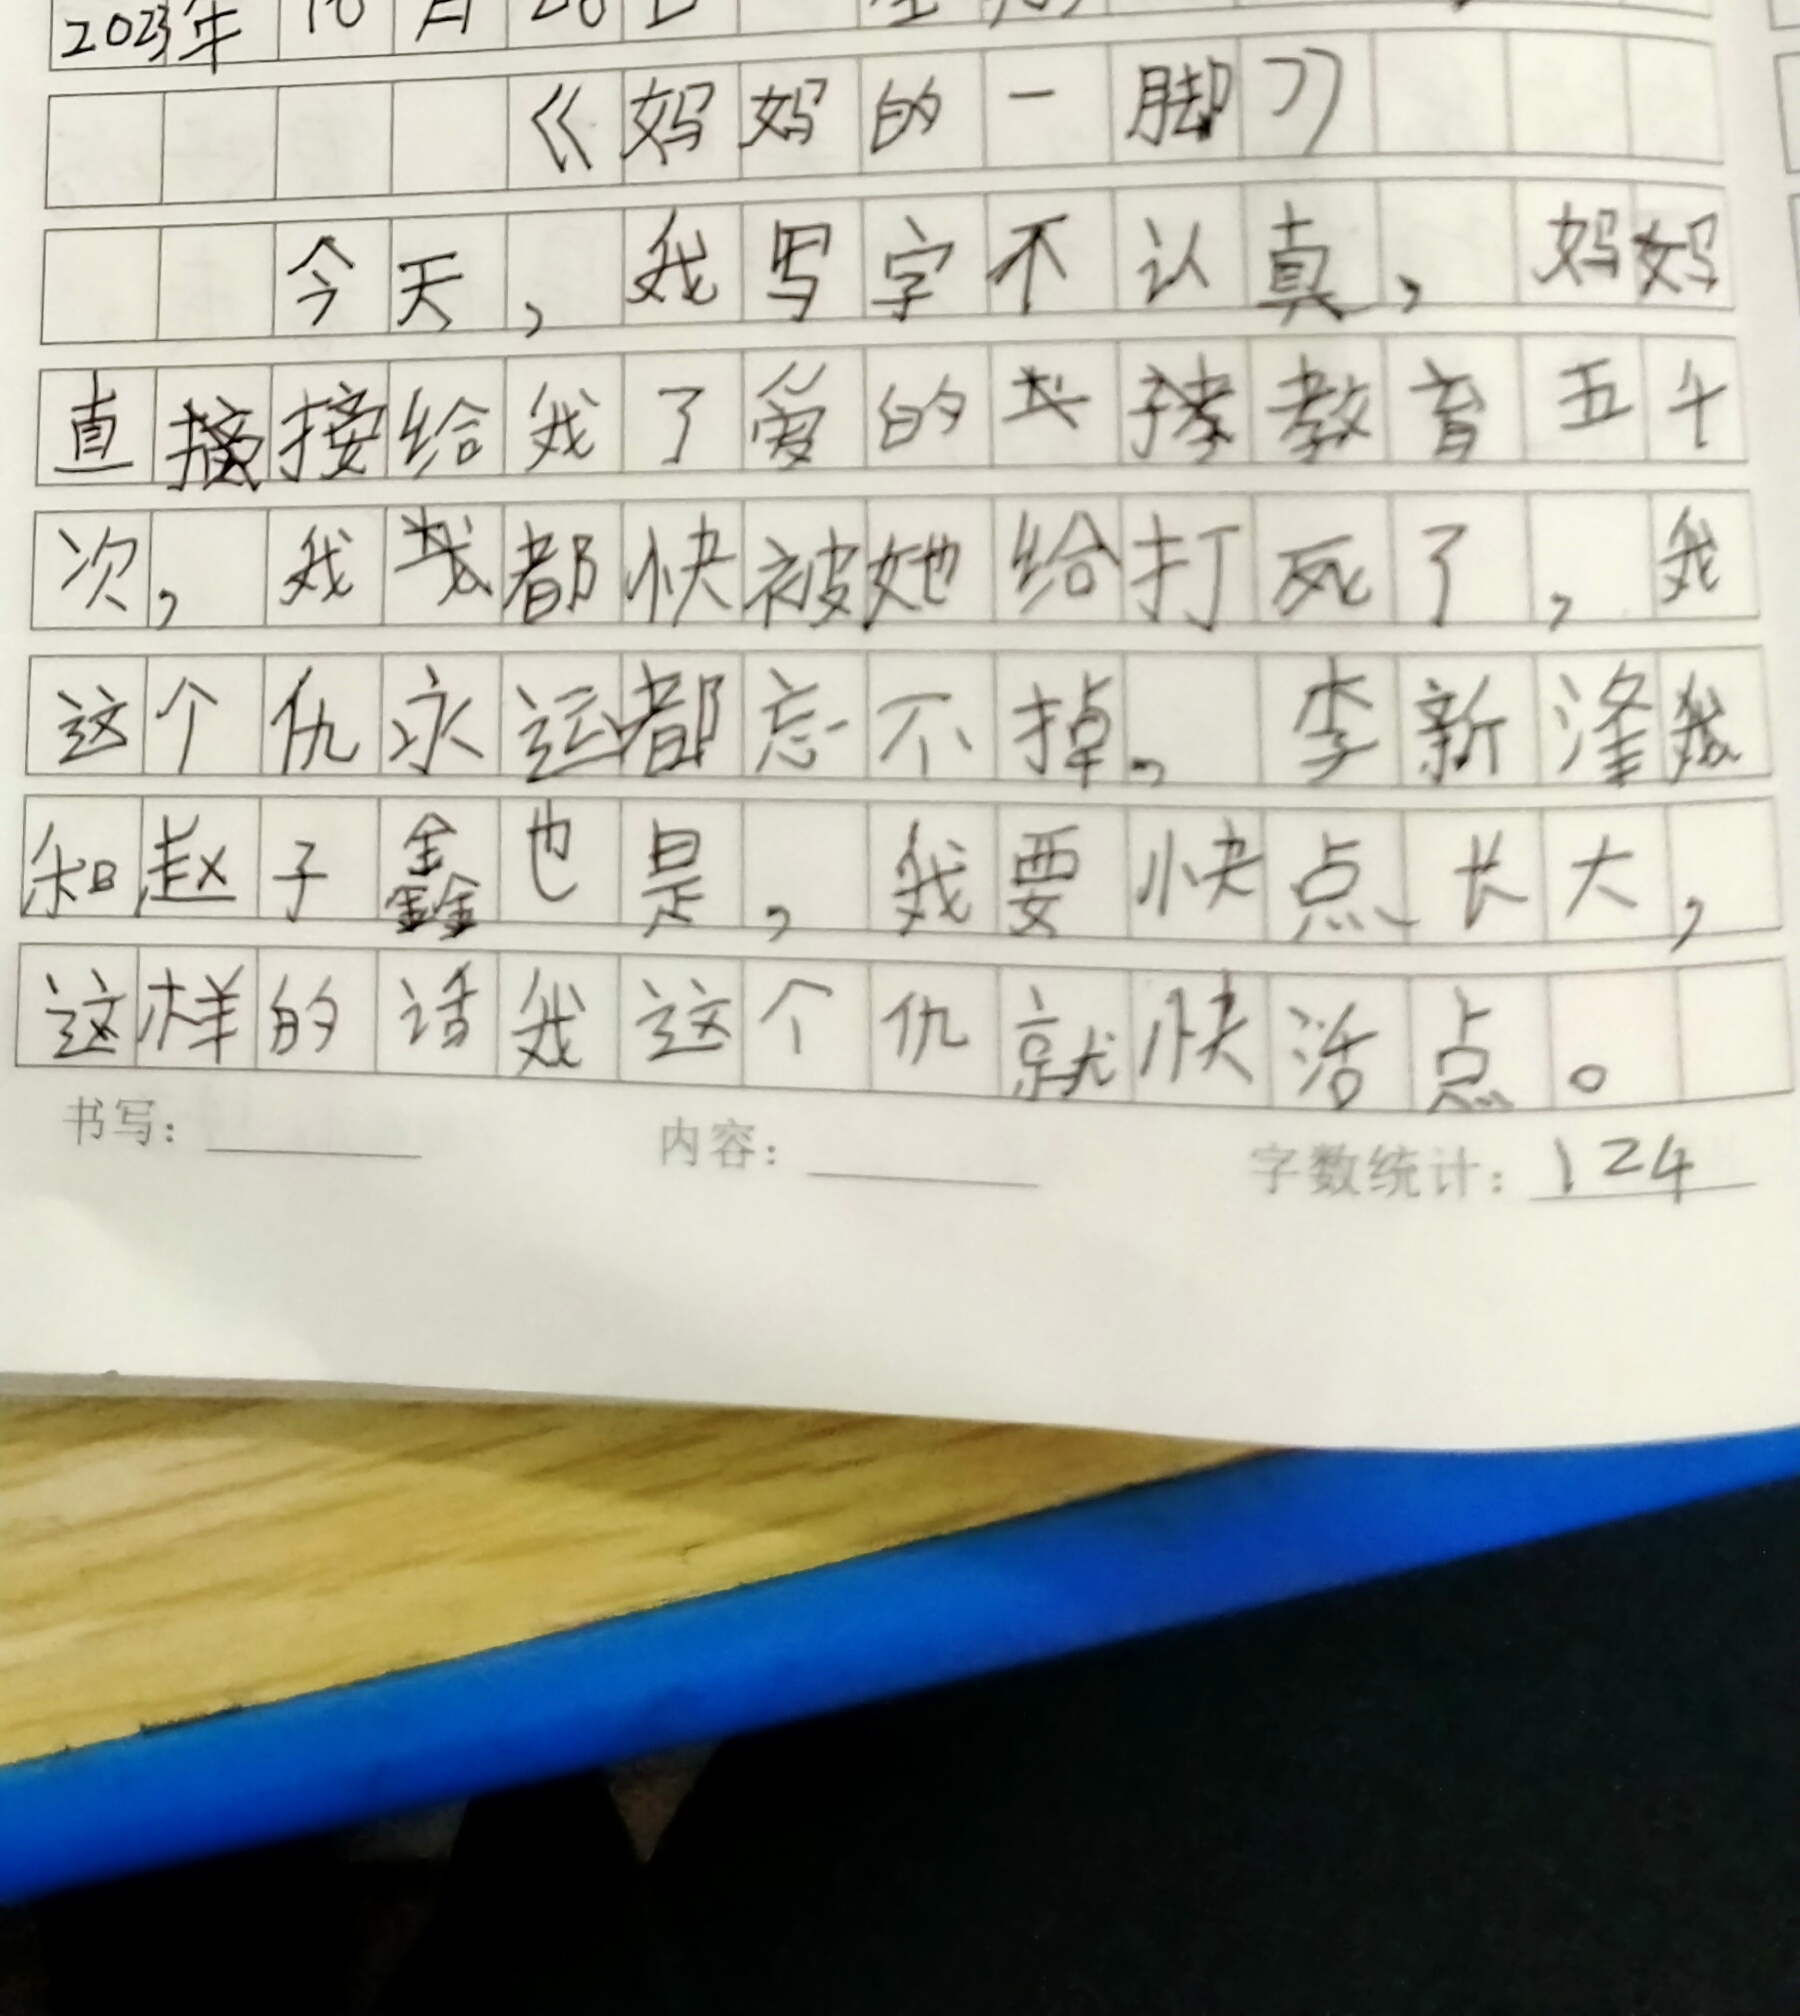 2023年 10月20日 星期
《妈妈的一脚》
今天，我写字不认真，妈妈
直接给我了爱的教育五十
次，我都快被她给打死了，我
这个仇永远都忘不掉。李新泽
和赵子鑫也是，我要快点长大，
这样的话我这个仇就快活点。
书写： 内容： 字数统计：124